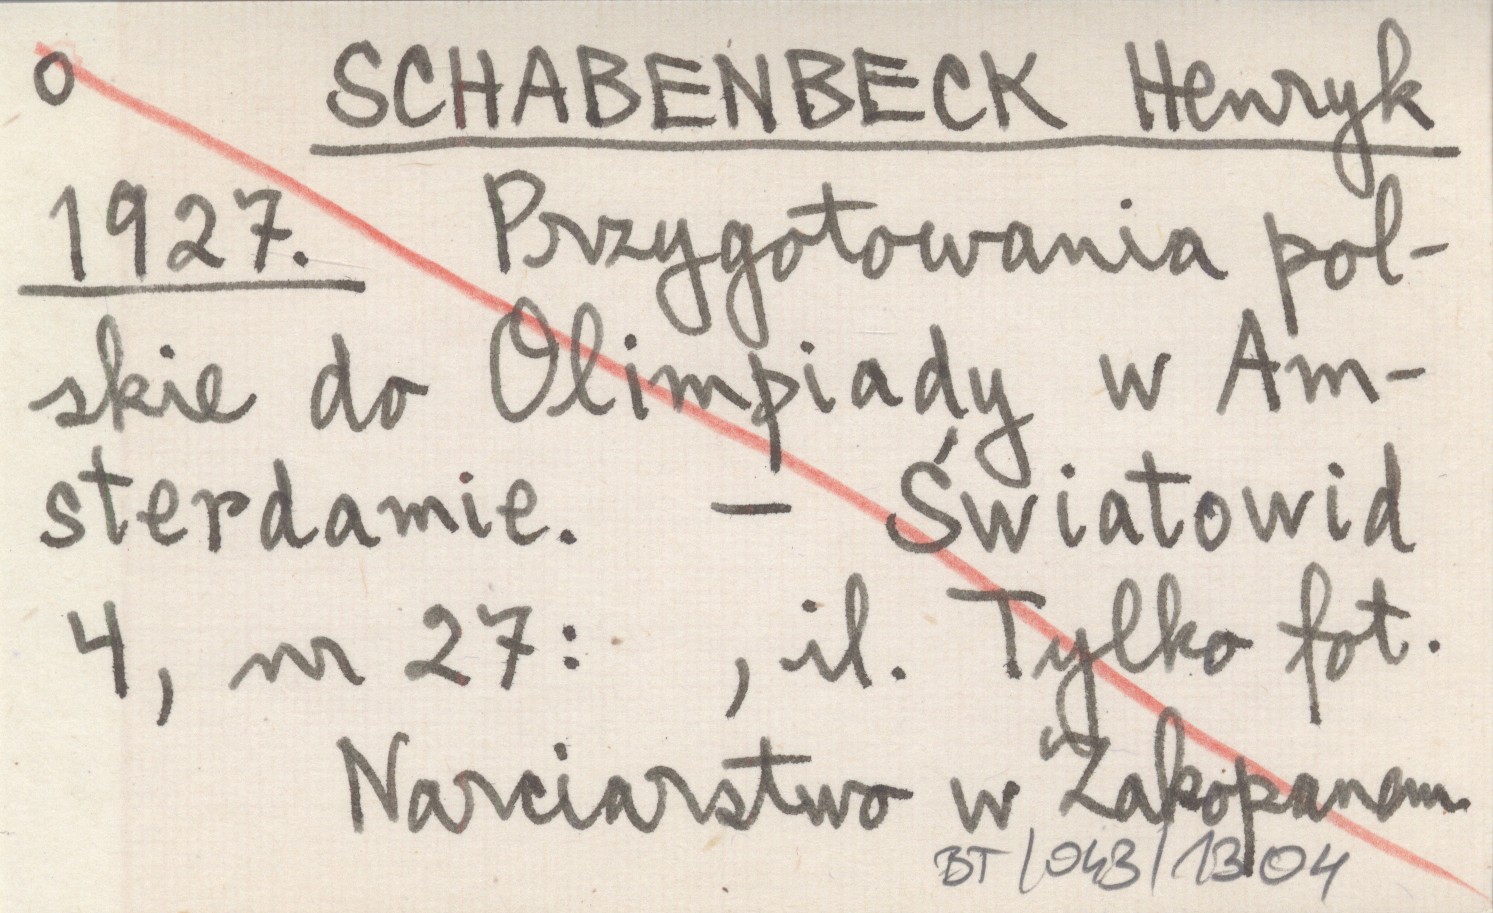 o SCHABENBECK Henryk
1927. Przygotowania pol-
skie do Olimpiady w Am-
sterdamie. - Światowid
4, nr 27: , il. Tylko fot.
Narciarstwo w Zakopanem.
BT/043/1304